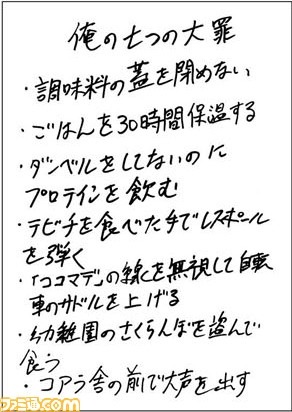 俺の七つの大罪
・調味料の蓋を閉めない
・ごはんを30時間保温する
・ダンベルをしてないのに
プロテインを飲む
・テビチを食べた手でレスポール
を弾く
・「ココマデ」の線を無視して自転
車のサドルを上げる
・幼稚園のさくらんぼを盗んで
食う
・コアラ舎の前で大声を出す
ファミ通.com